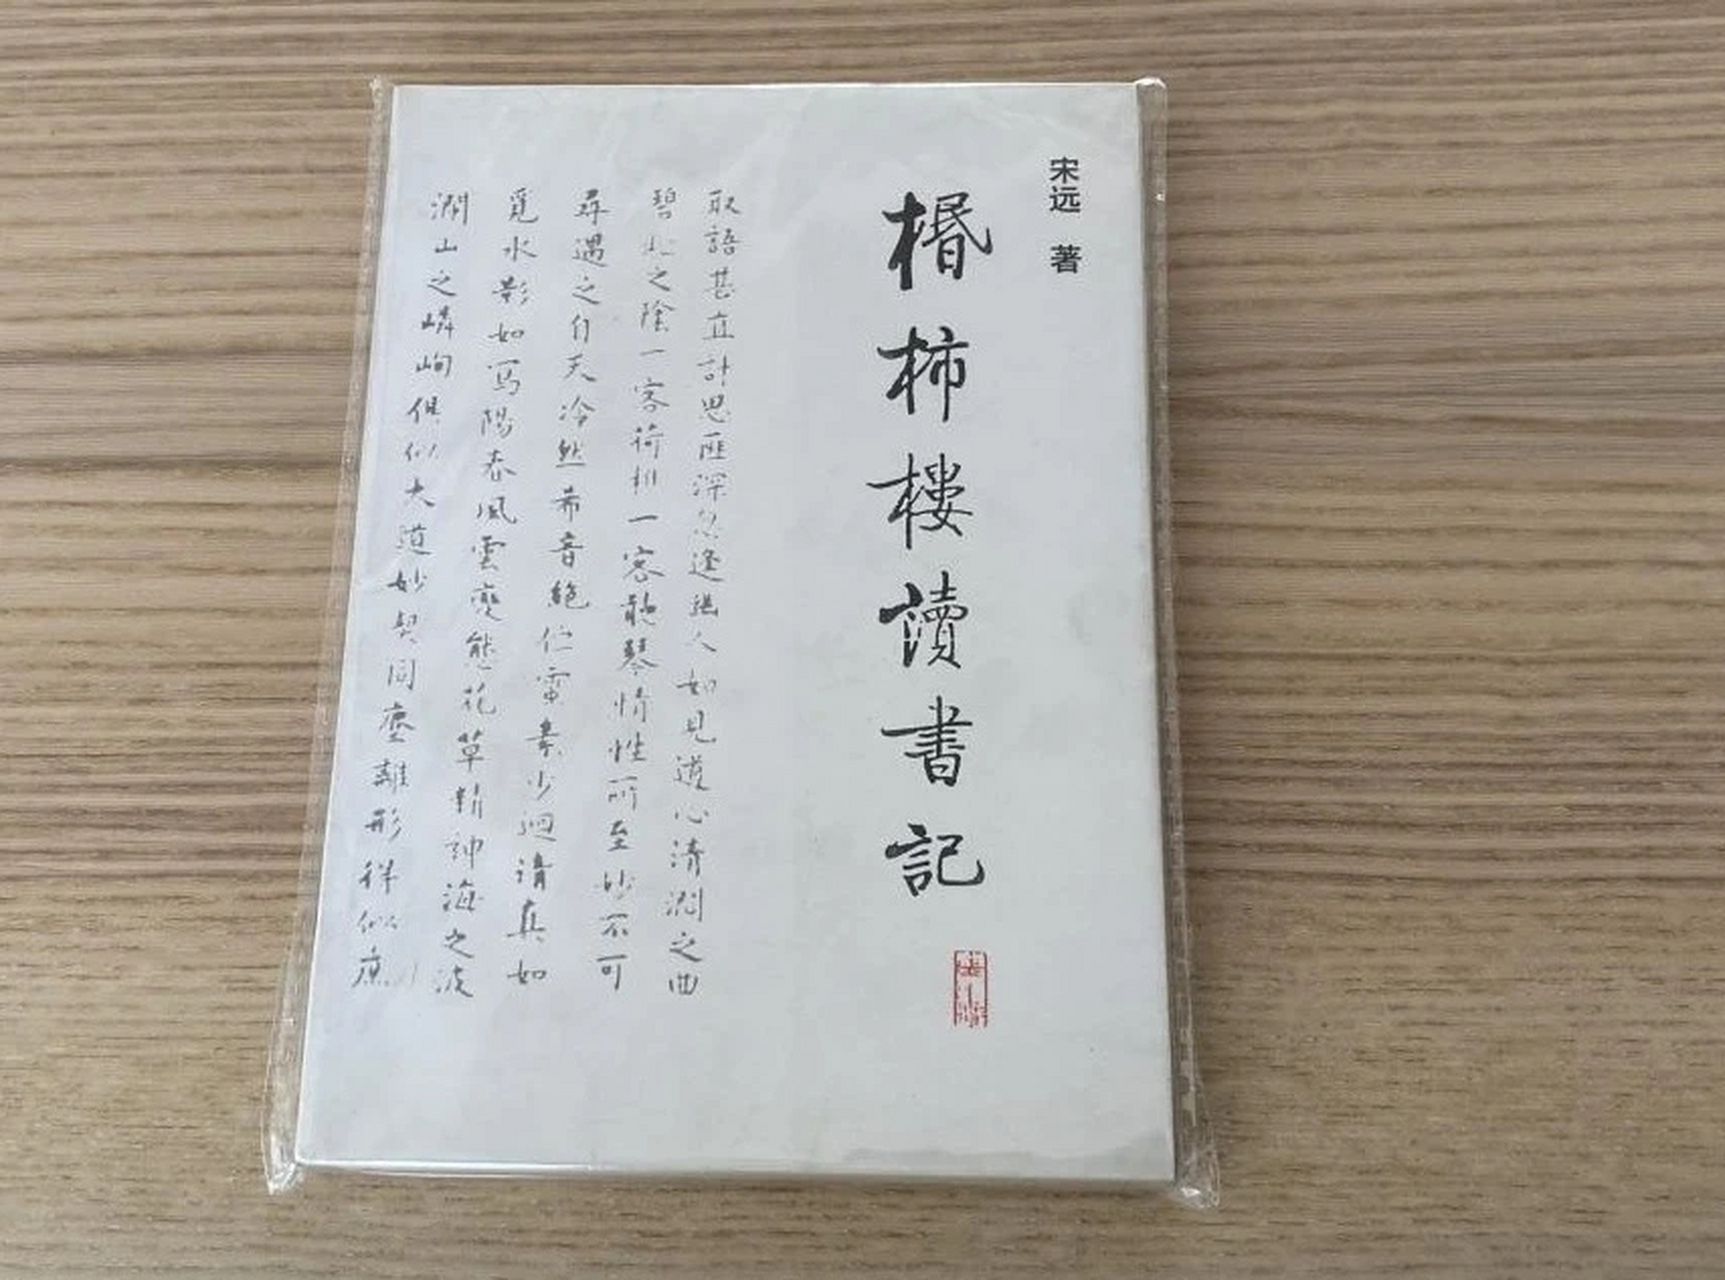 宋远 著
棔柿樓讀書記
取語甚直計思匪深忽逢幽人如見道心清澗之曲
碧松之陰一客荷樵一客聽琴情性所至妙不可
尋遇之自天泠然希音絕佇靈素少迴清真如
覓水影如寫陽春風雲變態花草精神海之波
瀾山之嶙峋俱似大道妙契同塵離形得似庶